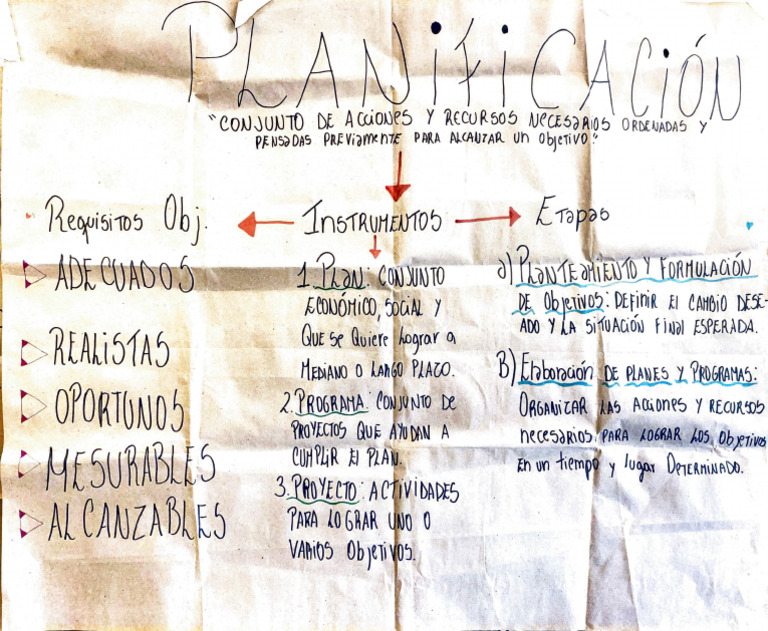 PLANIFICACIÓN
"CONJUNTO DE ACCIONES Y RECURSOS NECESARIOS ORDENADAS Y
PENSADAS PREVIAMENTE PARA ALCANZAR UN OBJETIVO".
REQUISITOS OBJ.
ADECUADOS
REALISTAS
OPORTUNOS
MESURABLES
ALCANZABLES
INSTRUMENTOS
1. PLAN: CONJUNTO
ECONÓMICO, SOCIAL Y
QUE SE QUIERE LOGRAR A
MEDIANO O LARGO PLAZO.
2. PROGRAMA: CONJUNTO DE
PROYECTOS QUE AYUDAN A
CUMPLIR EL PLAN.
3. PROYECTO: ACTIVIDADES
PARA LOGRAR UNO O
VARIOS OBJETIVOS.
ETAPAS
a) PLANTEAMIENTO Y FORMULACIÓN
DE OBJETIVOS: DEFINIR EL CAMBIO DESE-
ADO Y LA SITUACIÓN FINAL ESPERADA.
B) ELABORACIÓN DE PLANES Y PROGRAMAS:
ORGANIZAR LAS ACCIONES Y RECURSOS
NECESARIOS PARA LOGRAR LOS OBJETIVOS
EN UN TIEMPO Y LUGAR DETERMINADO.